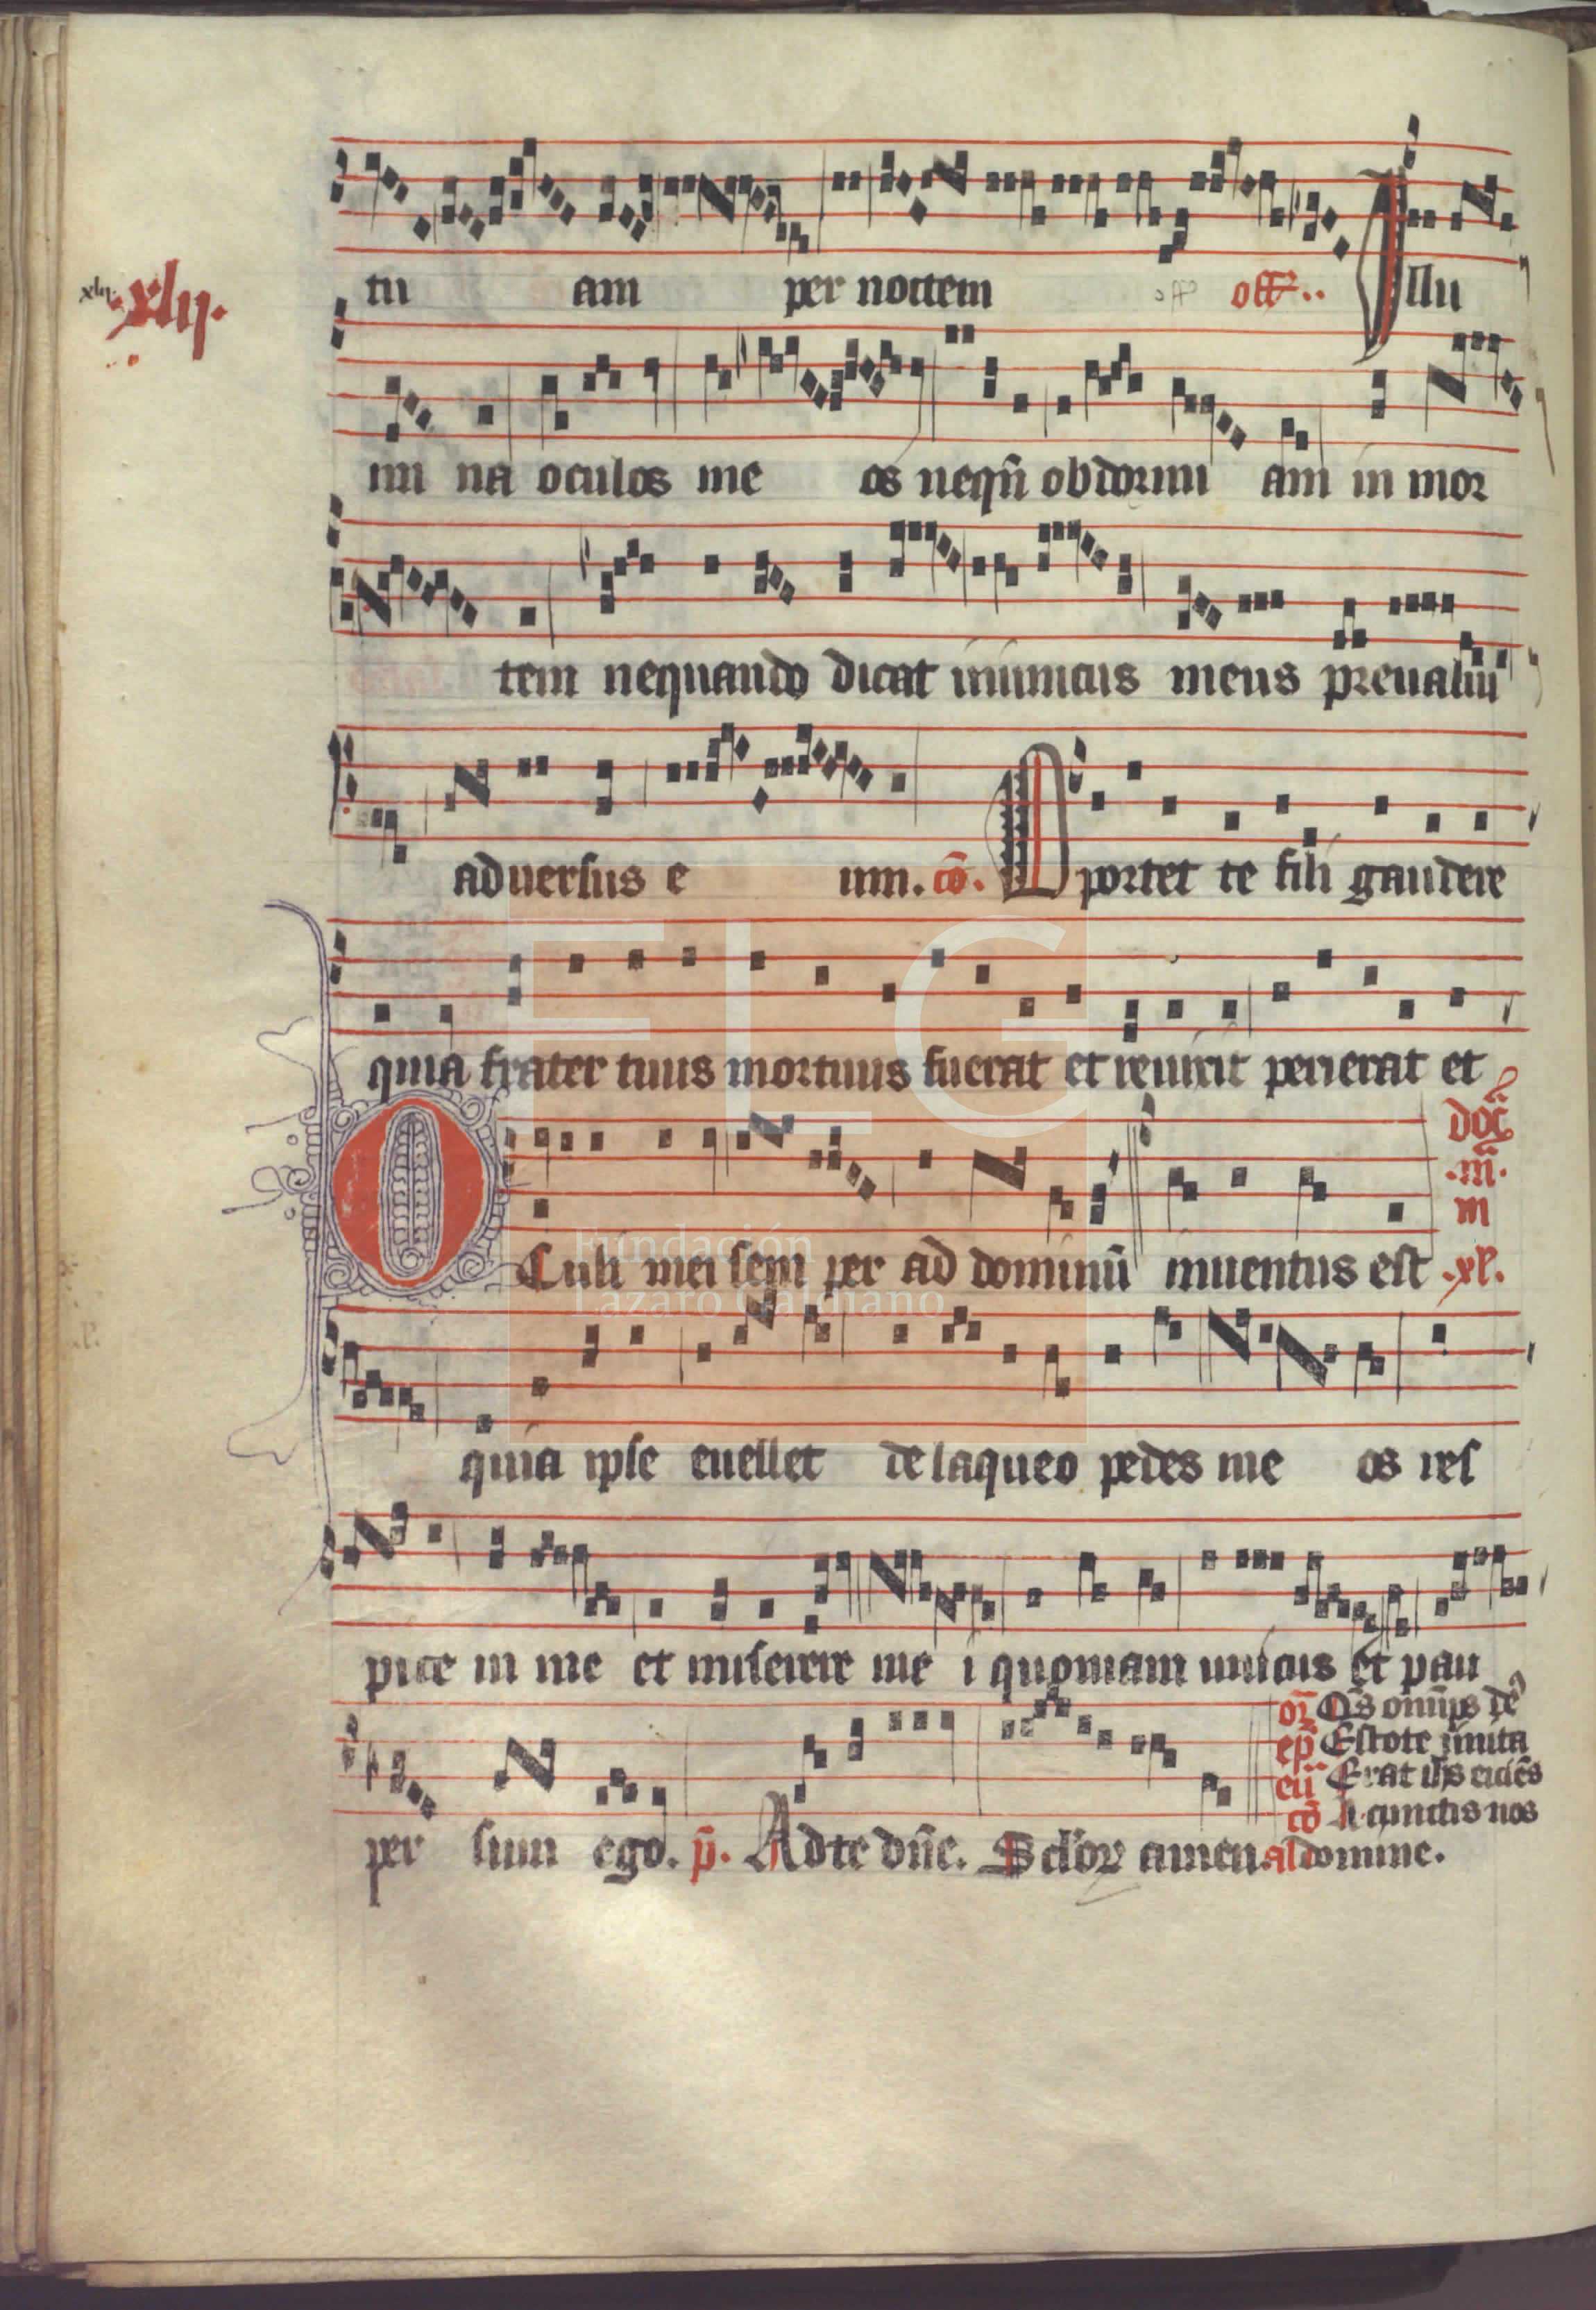 xlij. xlij.
tu am per noctem off off.. Illu
mi na oculos me os nequn̄ obdormi am in mor
tem nequando dicat inimicus meus preualui
aduersus e um. cō. Oportet te fili gaudere
quia frater tuus mortuus fuerat et reuixit perierat et
OCuli mei sem per ad dominū inuentus est
doc̄
.iij.
in
.xl.
FLG
Fundación
Lázaro Galdiano
quia ipse euellet de laqueo pedes me os res
pice in me et miserere me i quoniam unicus et pau
per sum ego. p̄. Ad te dn̄e. Sclor amen. al domine.
or̄ Qs omips de
ep̄ Estote imita
eū Erat ihs eiciēs
cō A cunctis nos